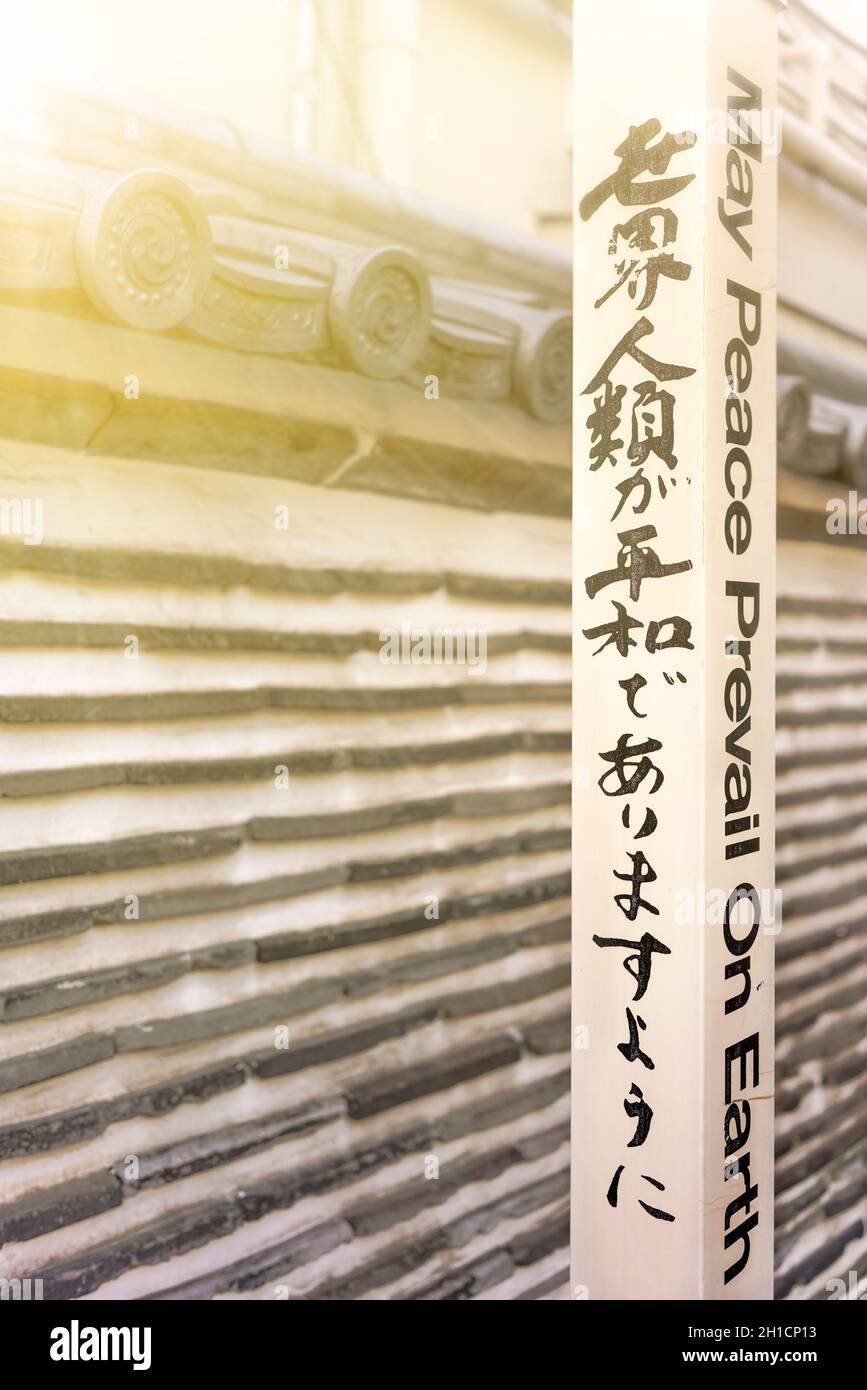 世界人類が平和でありますように
May Peace Prevail On Earth
alamy
Image ID: 2H1CP13
www.alamy.com